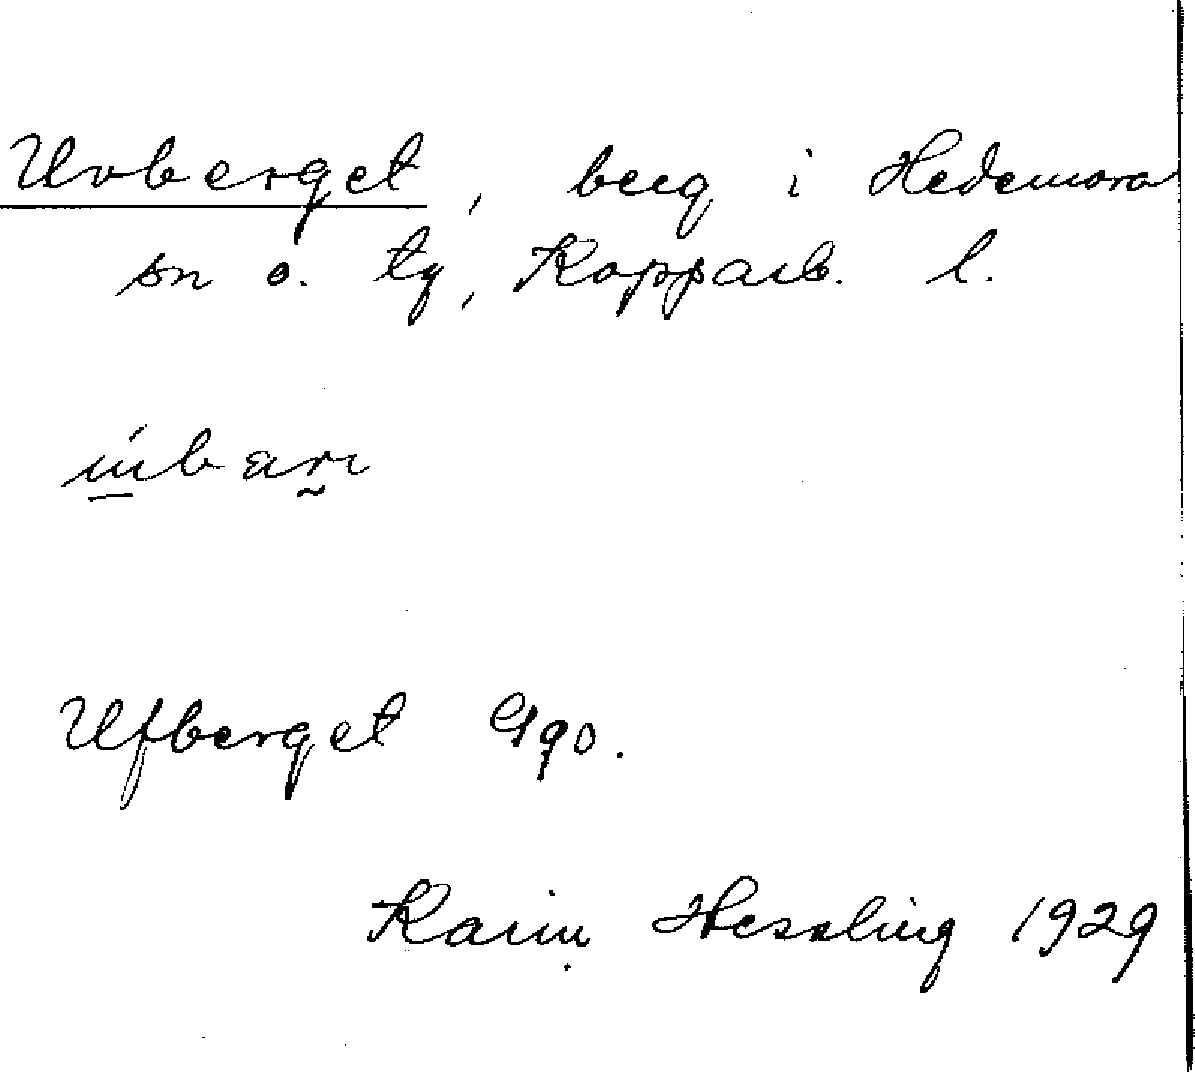 Uvberget, berg i Hedemora
sn o. tg, Kopparb. l.
Ufberget Gqo.
Karin Hessling 1929